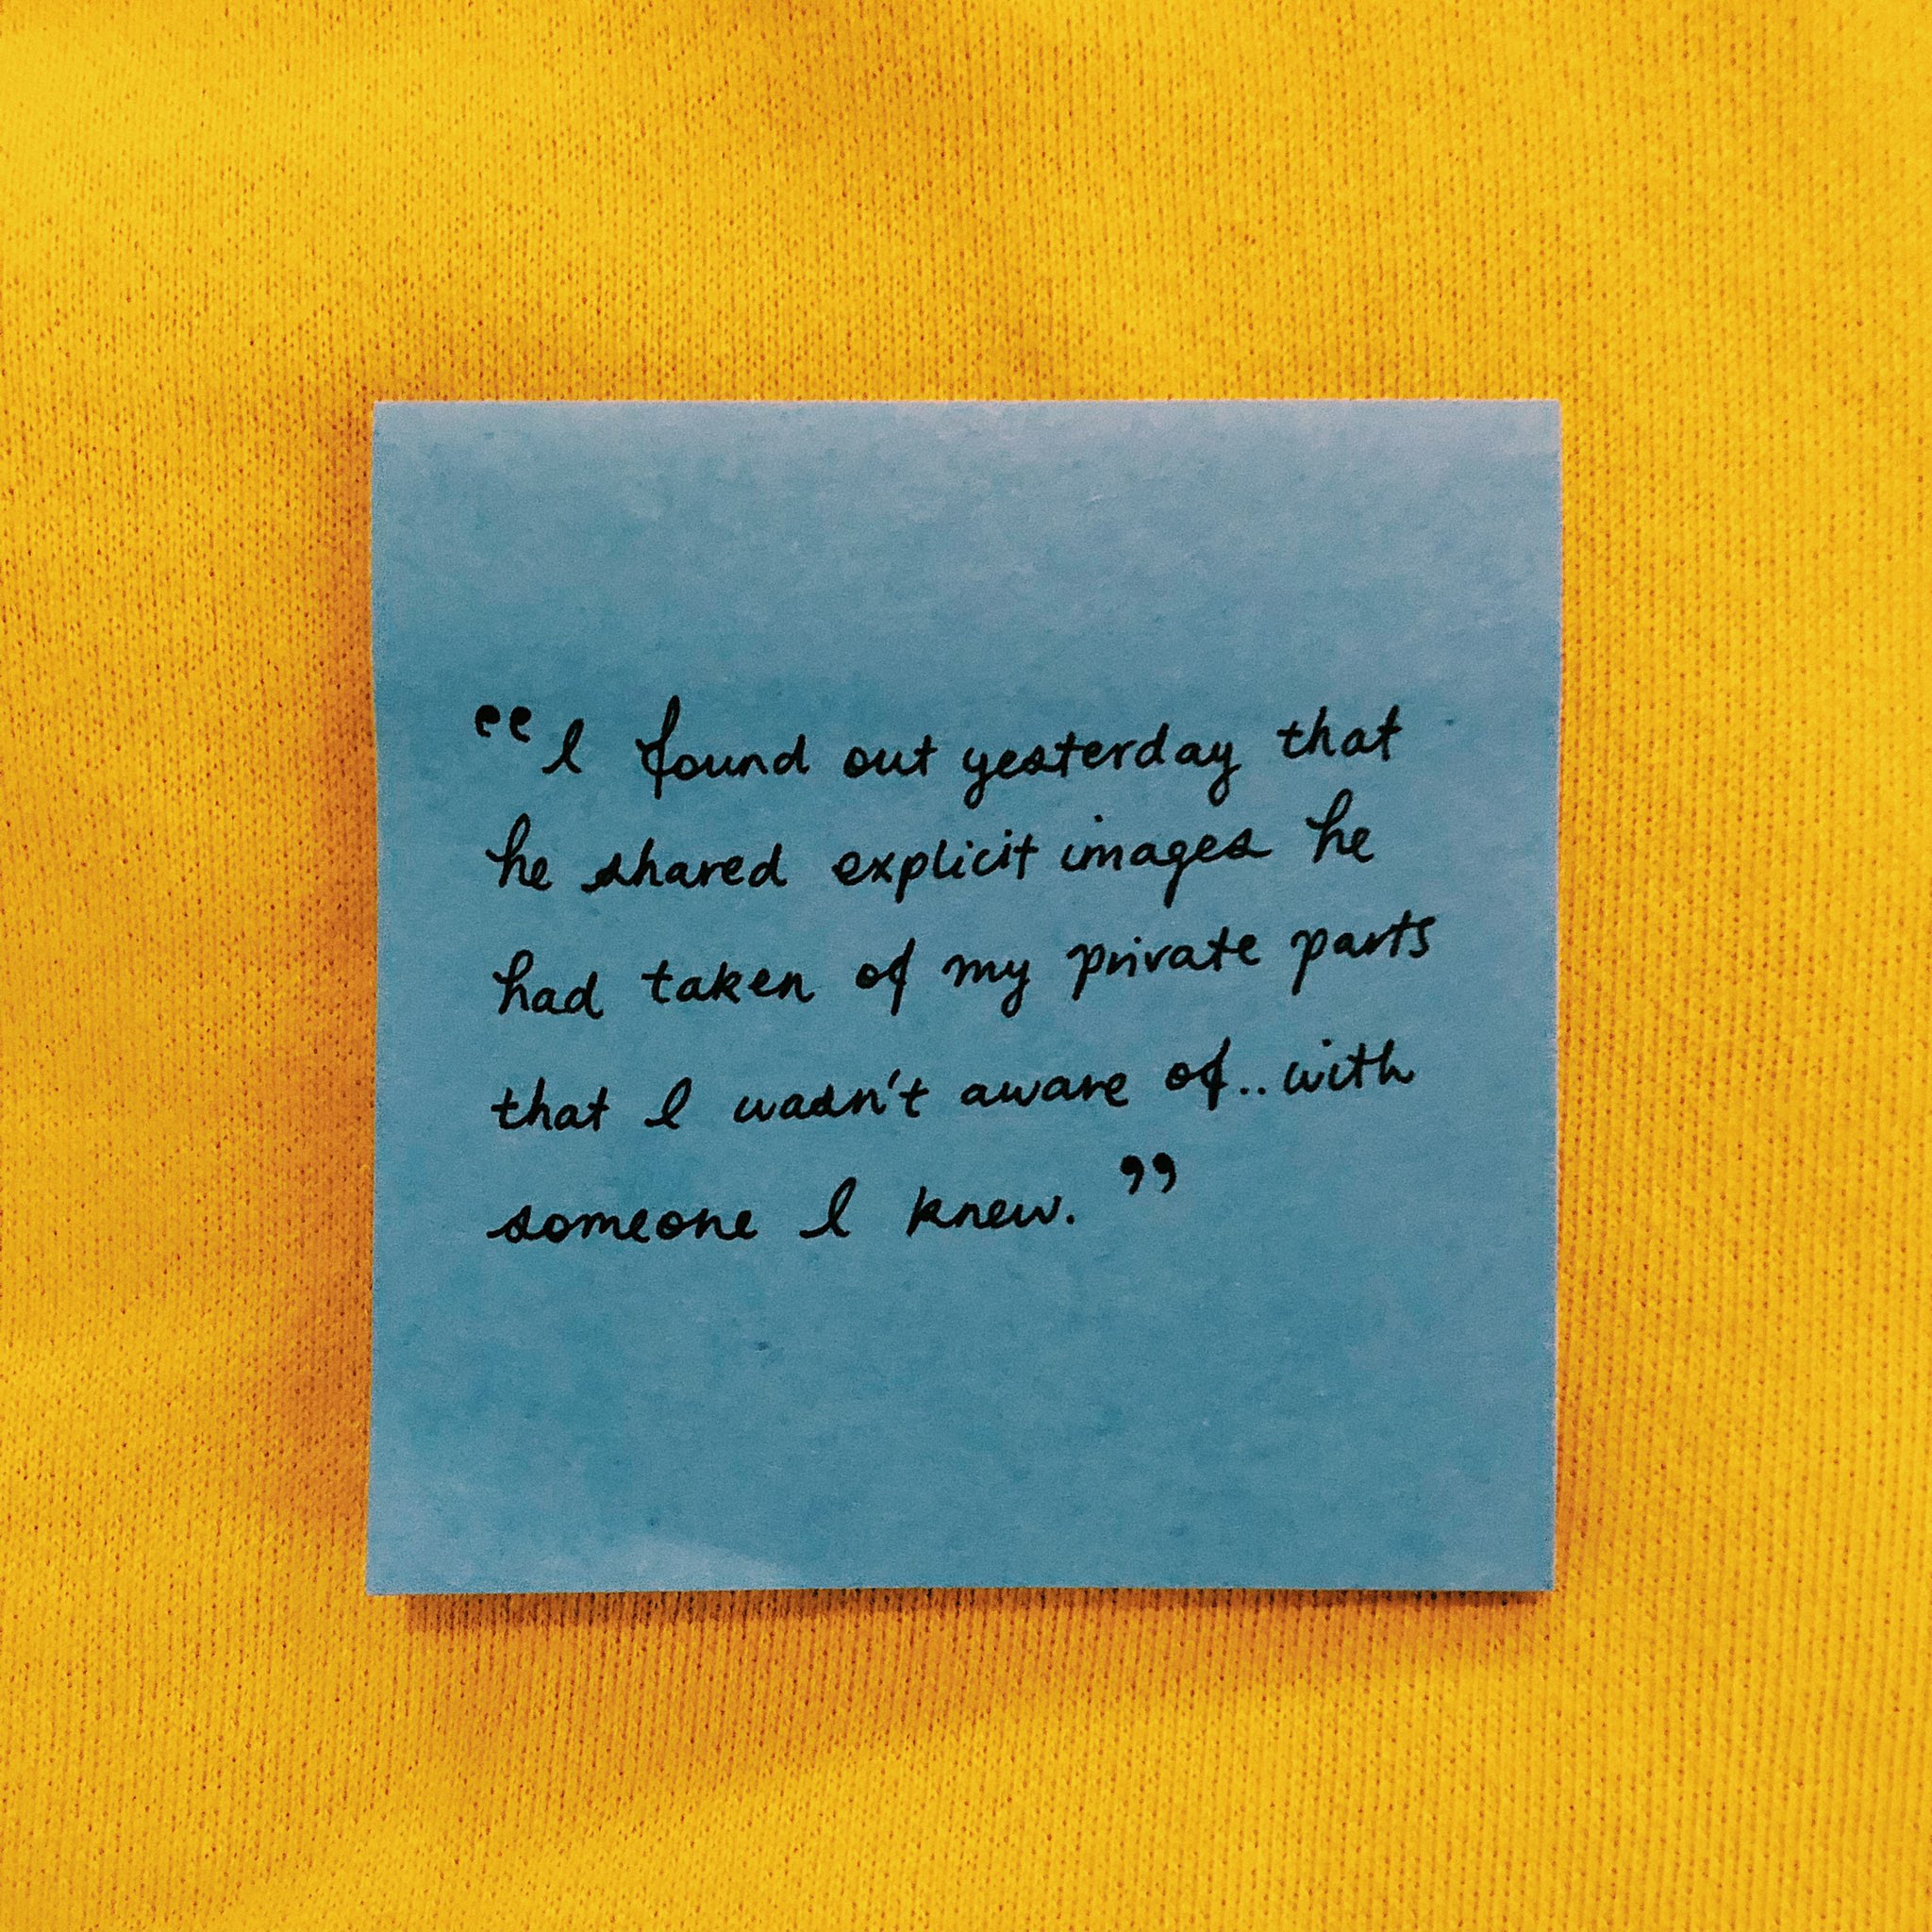 “I found out yesterday that
he shared explicit images he
had taken of my private parts
that I wasn't aware of.. with
someone I knew.”